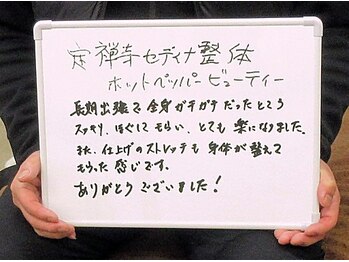 定禅寺セディナ整体
ホットペッパービューティー
長期出張で全身ガチガチだったところ
スッキリ、ほぐしてもらい、とても楽になりました。
また、仕上げのストレッチも身体が整えて
もらった感じです。
ありがとうございました!